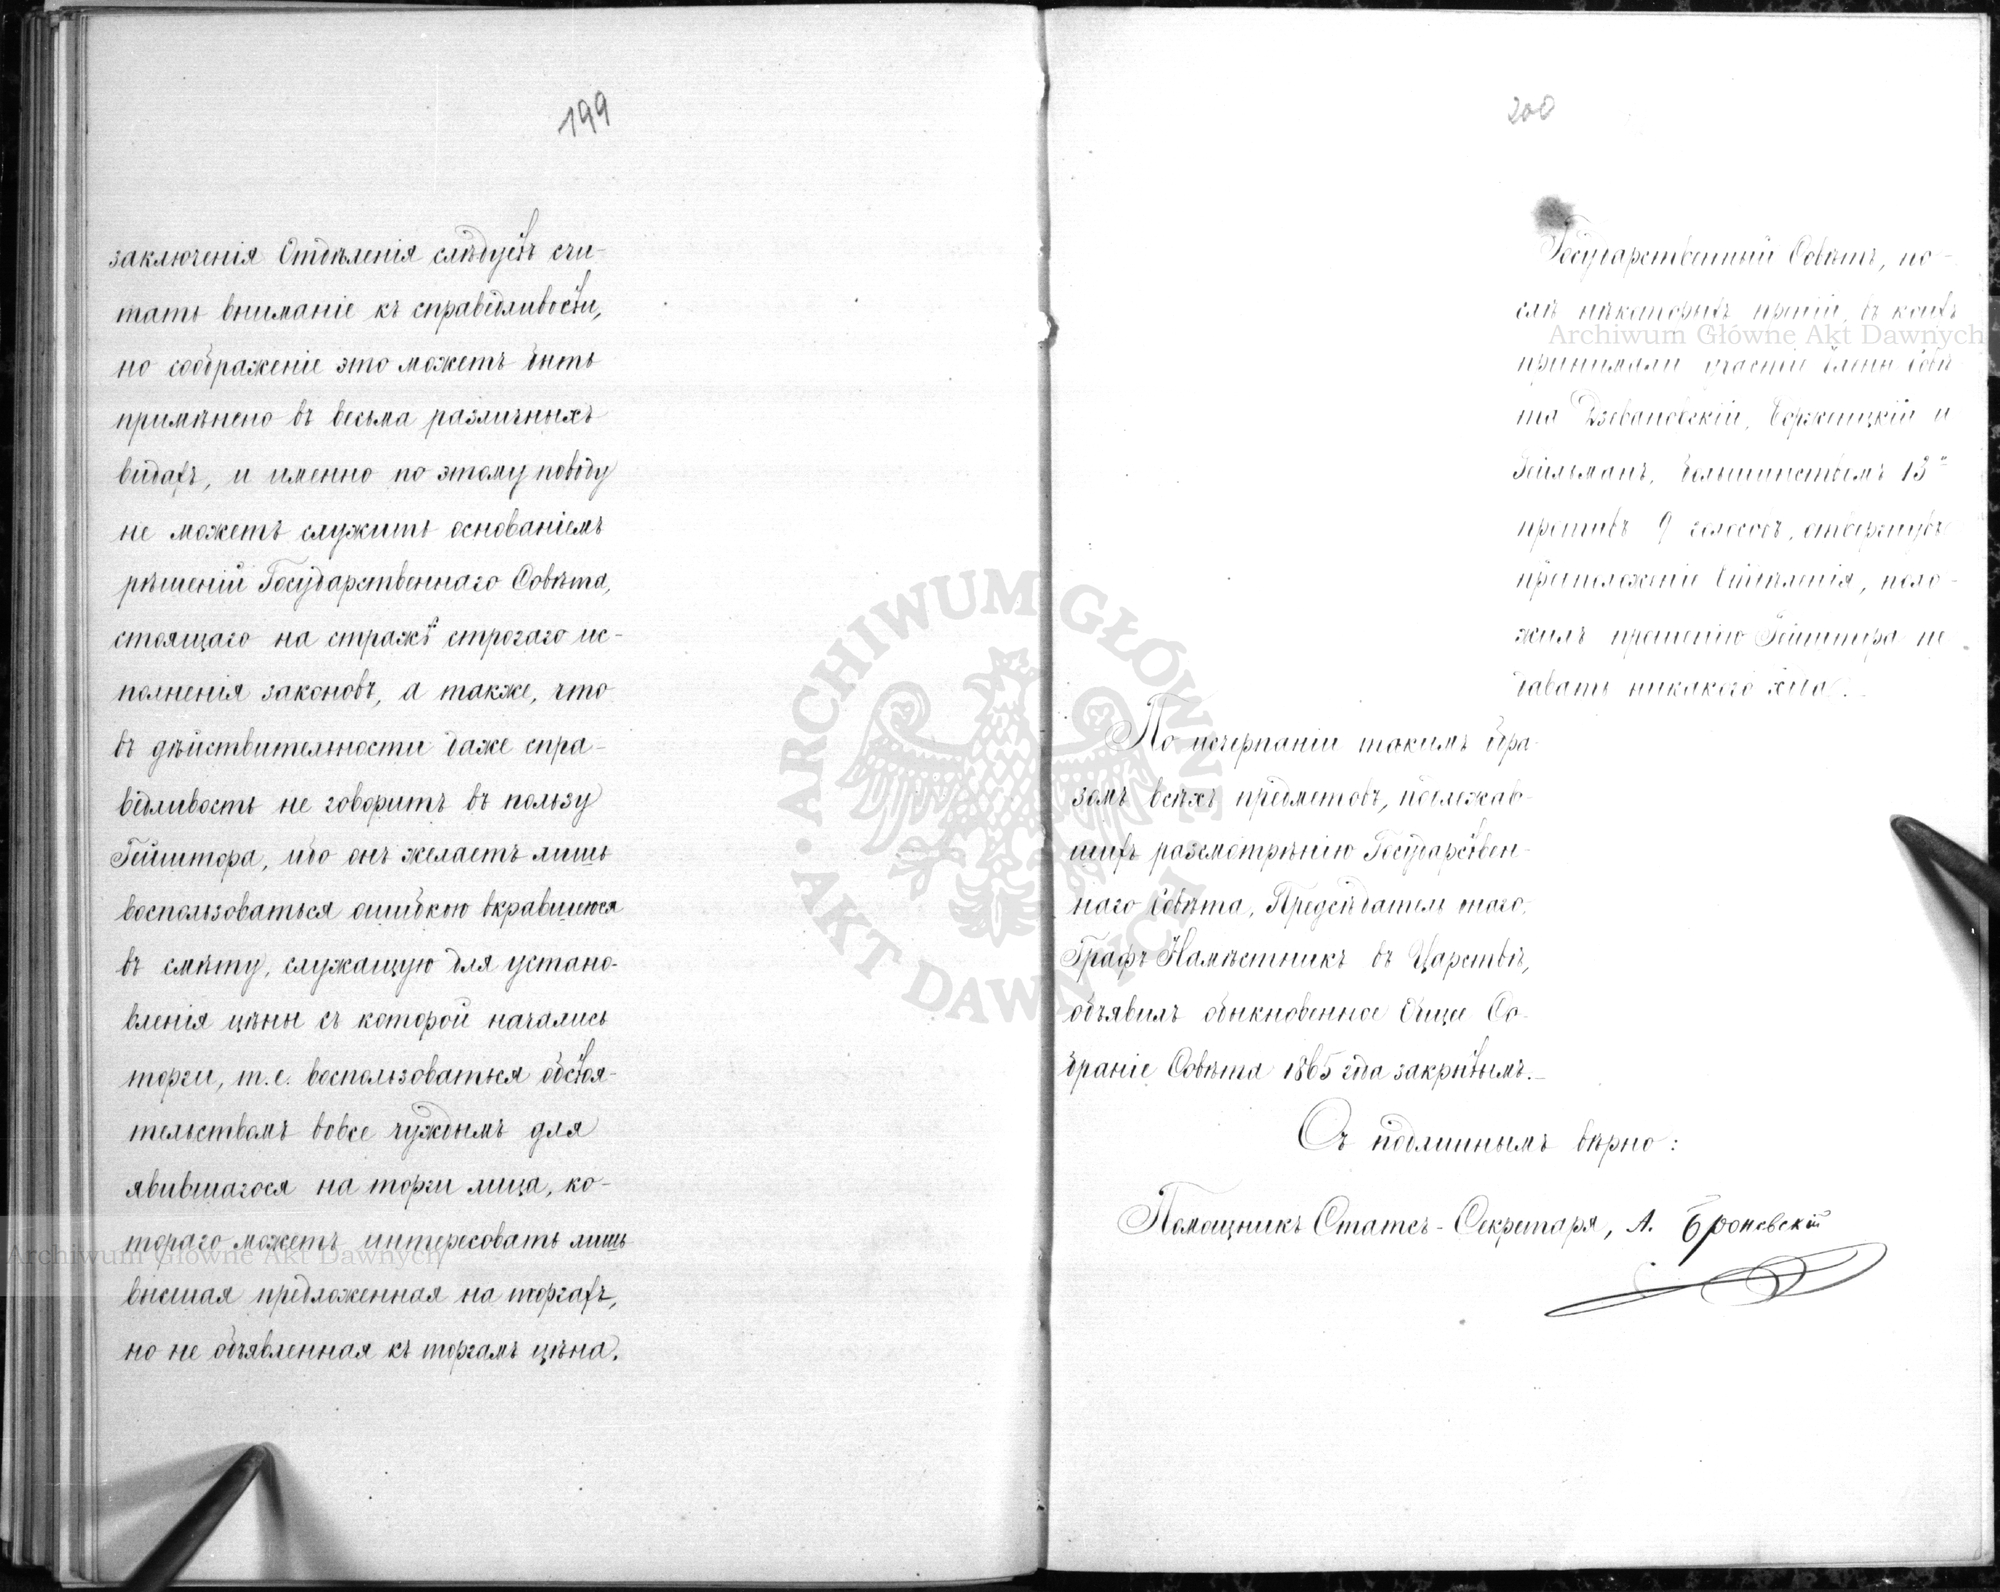 199
заключенія Отдѣленія слѣдуетъ счи-
тать вниманіе къ справедливости,
но соображеніе это можетъ быть
примѣнено въ весьма различныхъ
видахъ, и именно по этому поводу
не можетъ служить основаніемъ
рѣшеній Государственнаго Совѣта,
стоящаго на стражѣ строгаго ис-
полненія законовъ, а также, что
въ дѣйствительности даже спра-
ведливость не говоритъ въ пользу
Гейштора, ибо онъ желаетъ лишь
воспользоваться ошибкою вкравшеюся
въ смѣту, служащую для устано-
вленія цѣны съ которой начались
торги, т.е. воспользоваться обстоя-
тельствомъ вовсе чуждымъ для
явившагося на торги лица, ко-
тораго можетъ интересовать лишь
высшая предложенная на торгахъ,
но не объявленная къ торгамъ цѣна.
200
Государственный Совѣтъ, по-
слѣ нѣкоторыхъ преній, въ коихъ
принимали участіе Члены Совѣ-
та Дзевановскій, и
большинствомъ 13
противъ 9 голосовъ, отвергнувъ
предложеніе Отдѣленія, поло-
жилъ прошенію Гейштора не
давать никакого хода.
По исчерпаніи такимъ обра-
зомъ всѣхъ предметовъ, подлежав-
шихъ разсмотрѣнію Государствен-
наго Совѣта, Предсѣдатель онаго,
Графъ Намѣстникъ въ Царствѣ,
объявилъ обыкновенное Общее Со-
браніе Совѣта 1865 года закрытымъ.
Съ подлиннымъ вѣрно:
Помощникъ Статсъ-Секретаря, А. Броневскій
Archiwum Główne Akt Dawnych
Archiwum Główne Akt Dawnych
ARCHIWUM GŁÓWNE AKT DAWNYCH